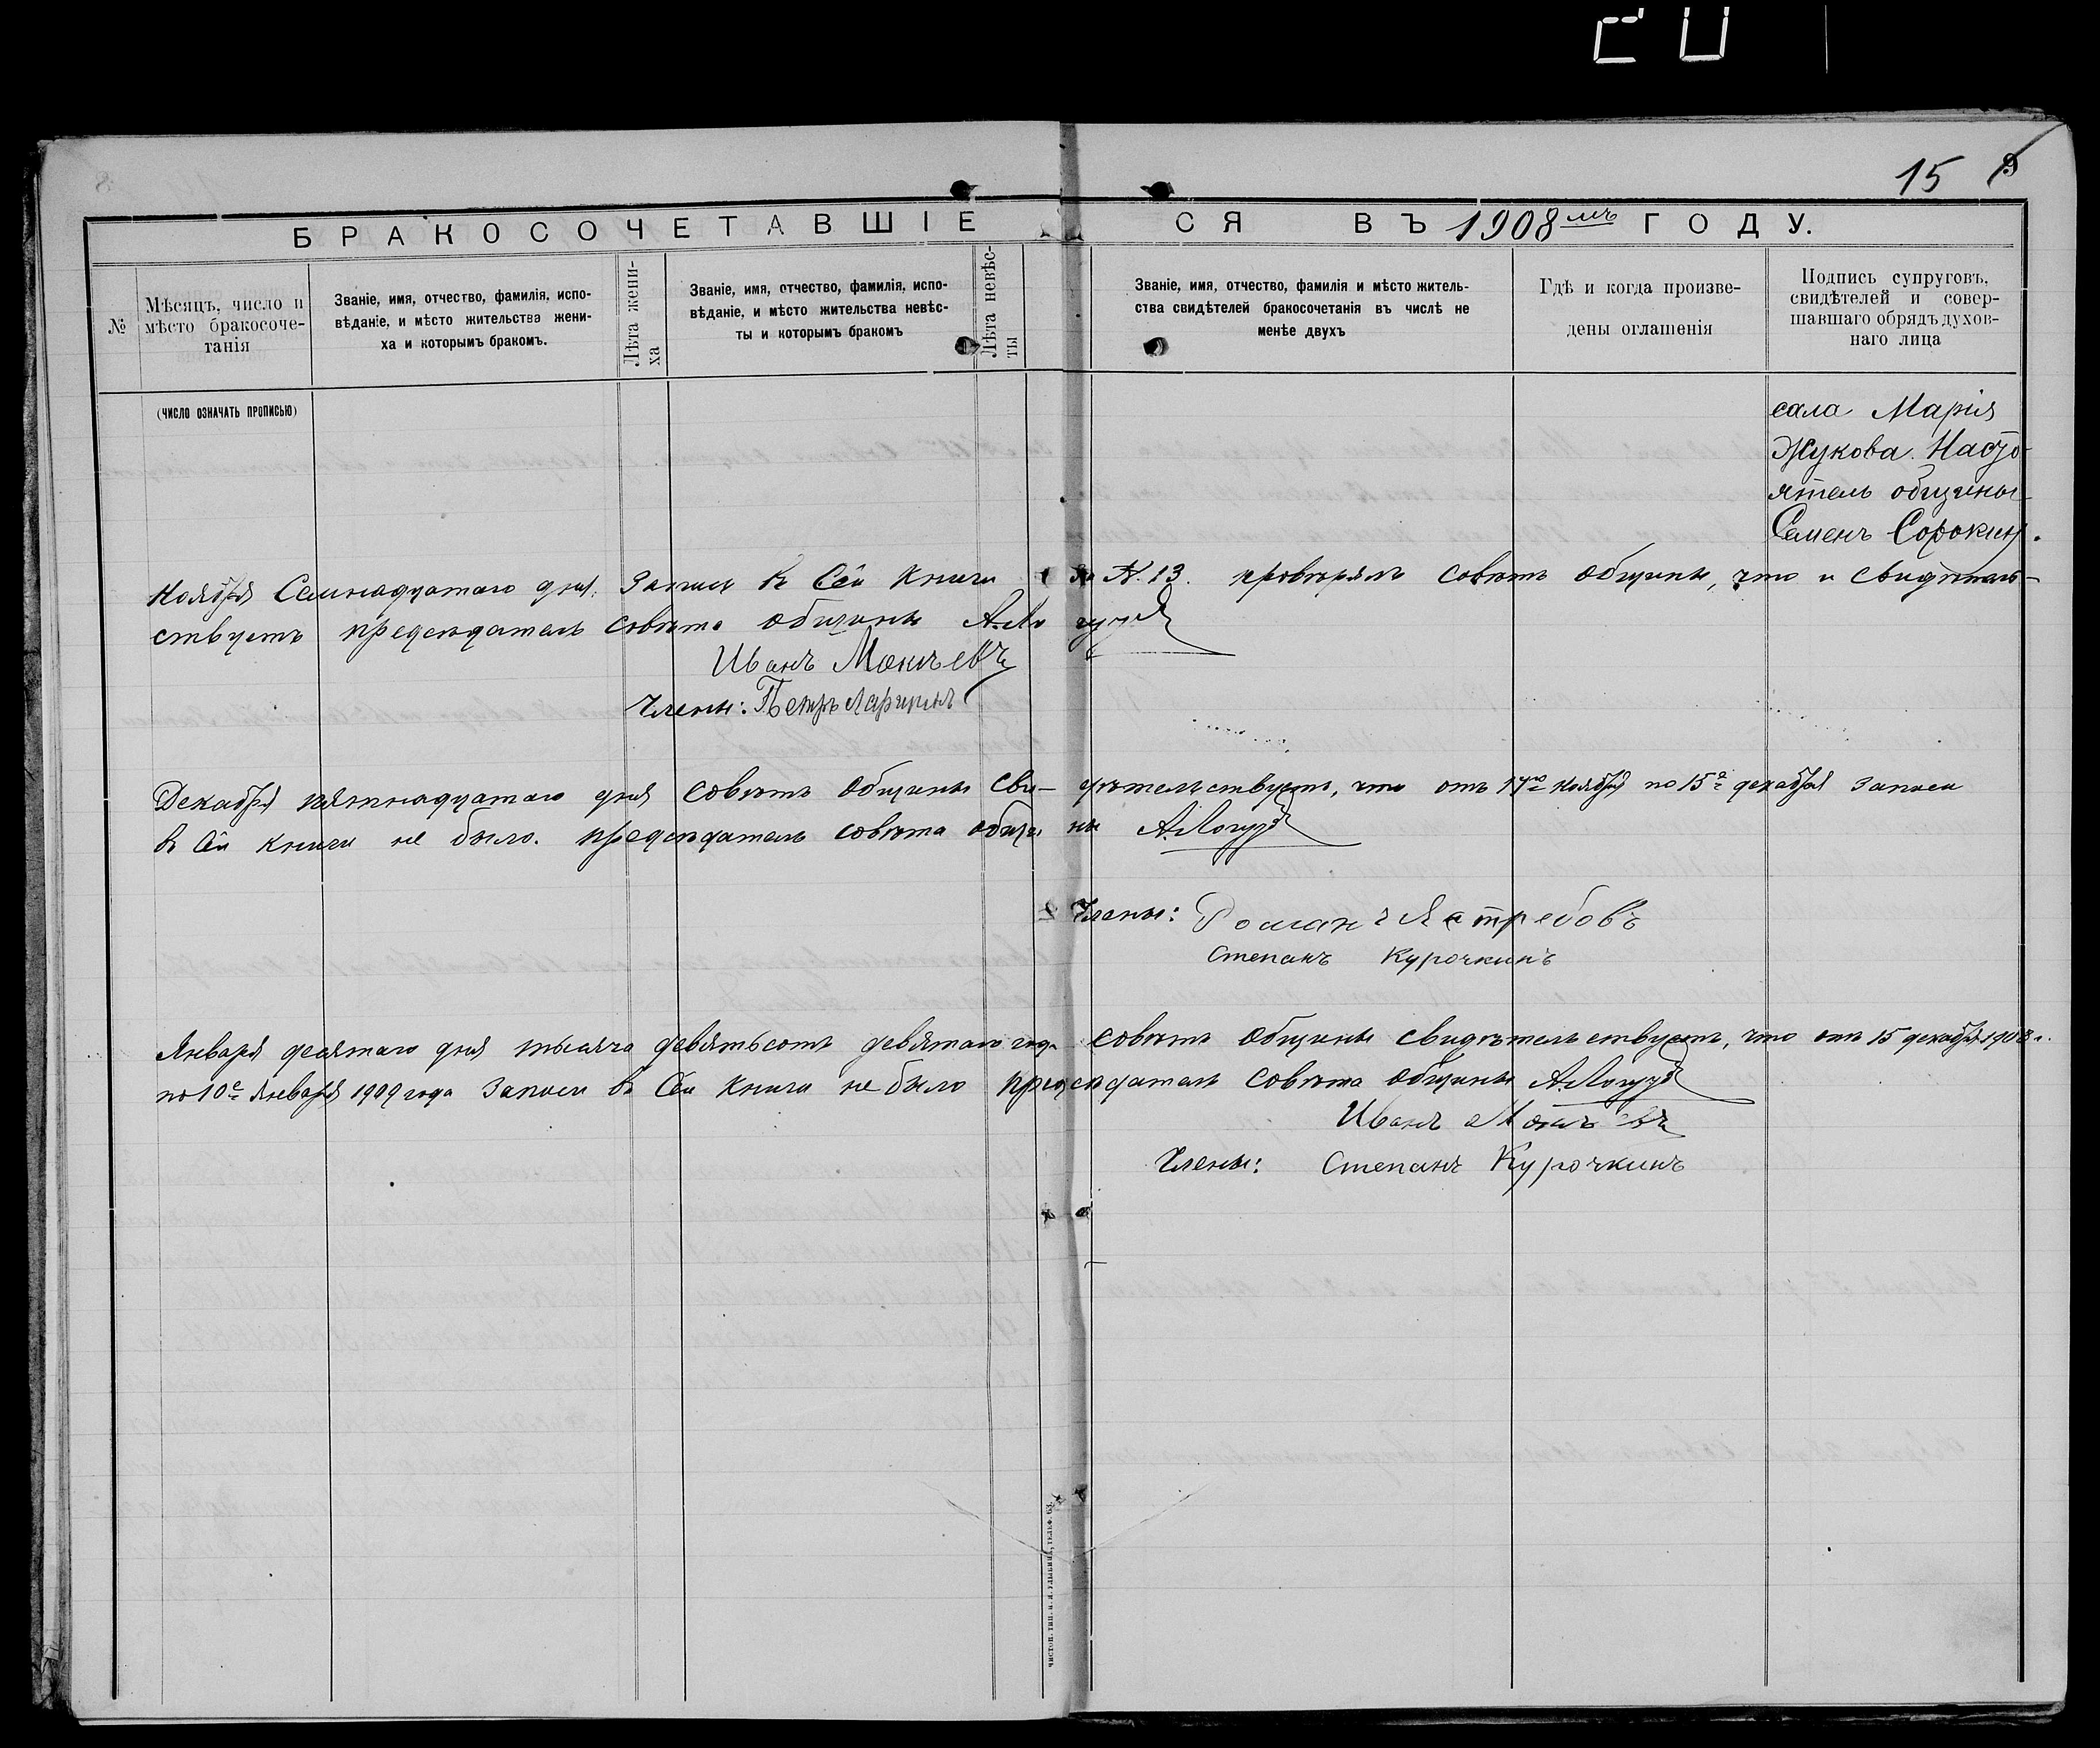 15 9
БРАКОСОЧЕТАВШІЕСЯ ВЪ 1908мъ ГОДУ.
№
Мѣсяцъ, число и
мѣсто бракосоче-
танія
Званіе, имя, отчество, фамилія, испо-
вѣданіе, и мѣсто жительства жени-
ха и которымъ бракомъ.
Лѣта жени-
ха
Званіе, имя, отчество, фамилія, испо-
вѣданіе, и мѣсто жительства невѣс-
ты и которымъ бракомъ
Лѣта невѣс-
ты
Званіе, имя, отчество, фамилія и мѣсто житель-
ства свидѣтелей бракосочетанія въ числѣ не
менѣе двухъ
Гдѣ и когда произве-
дены оглашенія
Подпись супруговъ,
свидѣтелей и совер-
шавшаго обрядъ духов-
наго лица
(ЧИСЛО ОЗНАЧАТЬ ПРОПИСЬЮ)
сала Марія
Жукова. Насто-
ятель общины
Семенъ Сорокин.
Ноября Семнадцатаго дня. Записи в Сей книги за N. 13. провѣрялъ совѣтъ общины, что и свидѣтель-
ствуетъ предсѣдатель совѣта общины А.
Иванъ
Члены: Петръ Ларинъ
Декабря пятнадцатаго дня совѣтъ общины сви-дѣтельствуетъ, что отъ 17го ноября по 15е декабря записи
в Сей книги не было. предсѣдатель совѣта общины А.
Члены: Романъ Ястребовъ
Степанъ Курочкинъ
Января десятаго дня тысяча девятьсотъ девятаго года совѣтъ общины свидѣтельствуетъ, что отъ 15 декабря 1908 г.
по 10е января 1909 года записи в Сей книги не было предсѣдатель совѣта общины А.
Иванъ
Члены: Степанъ Курочкинъ